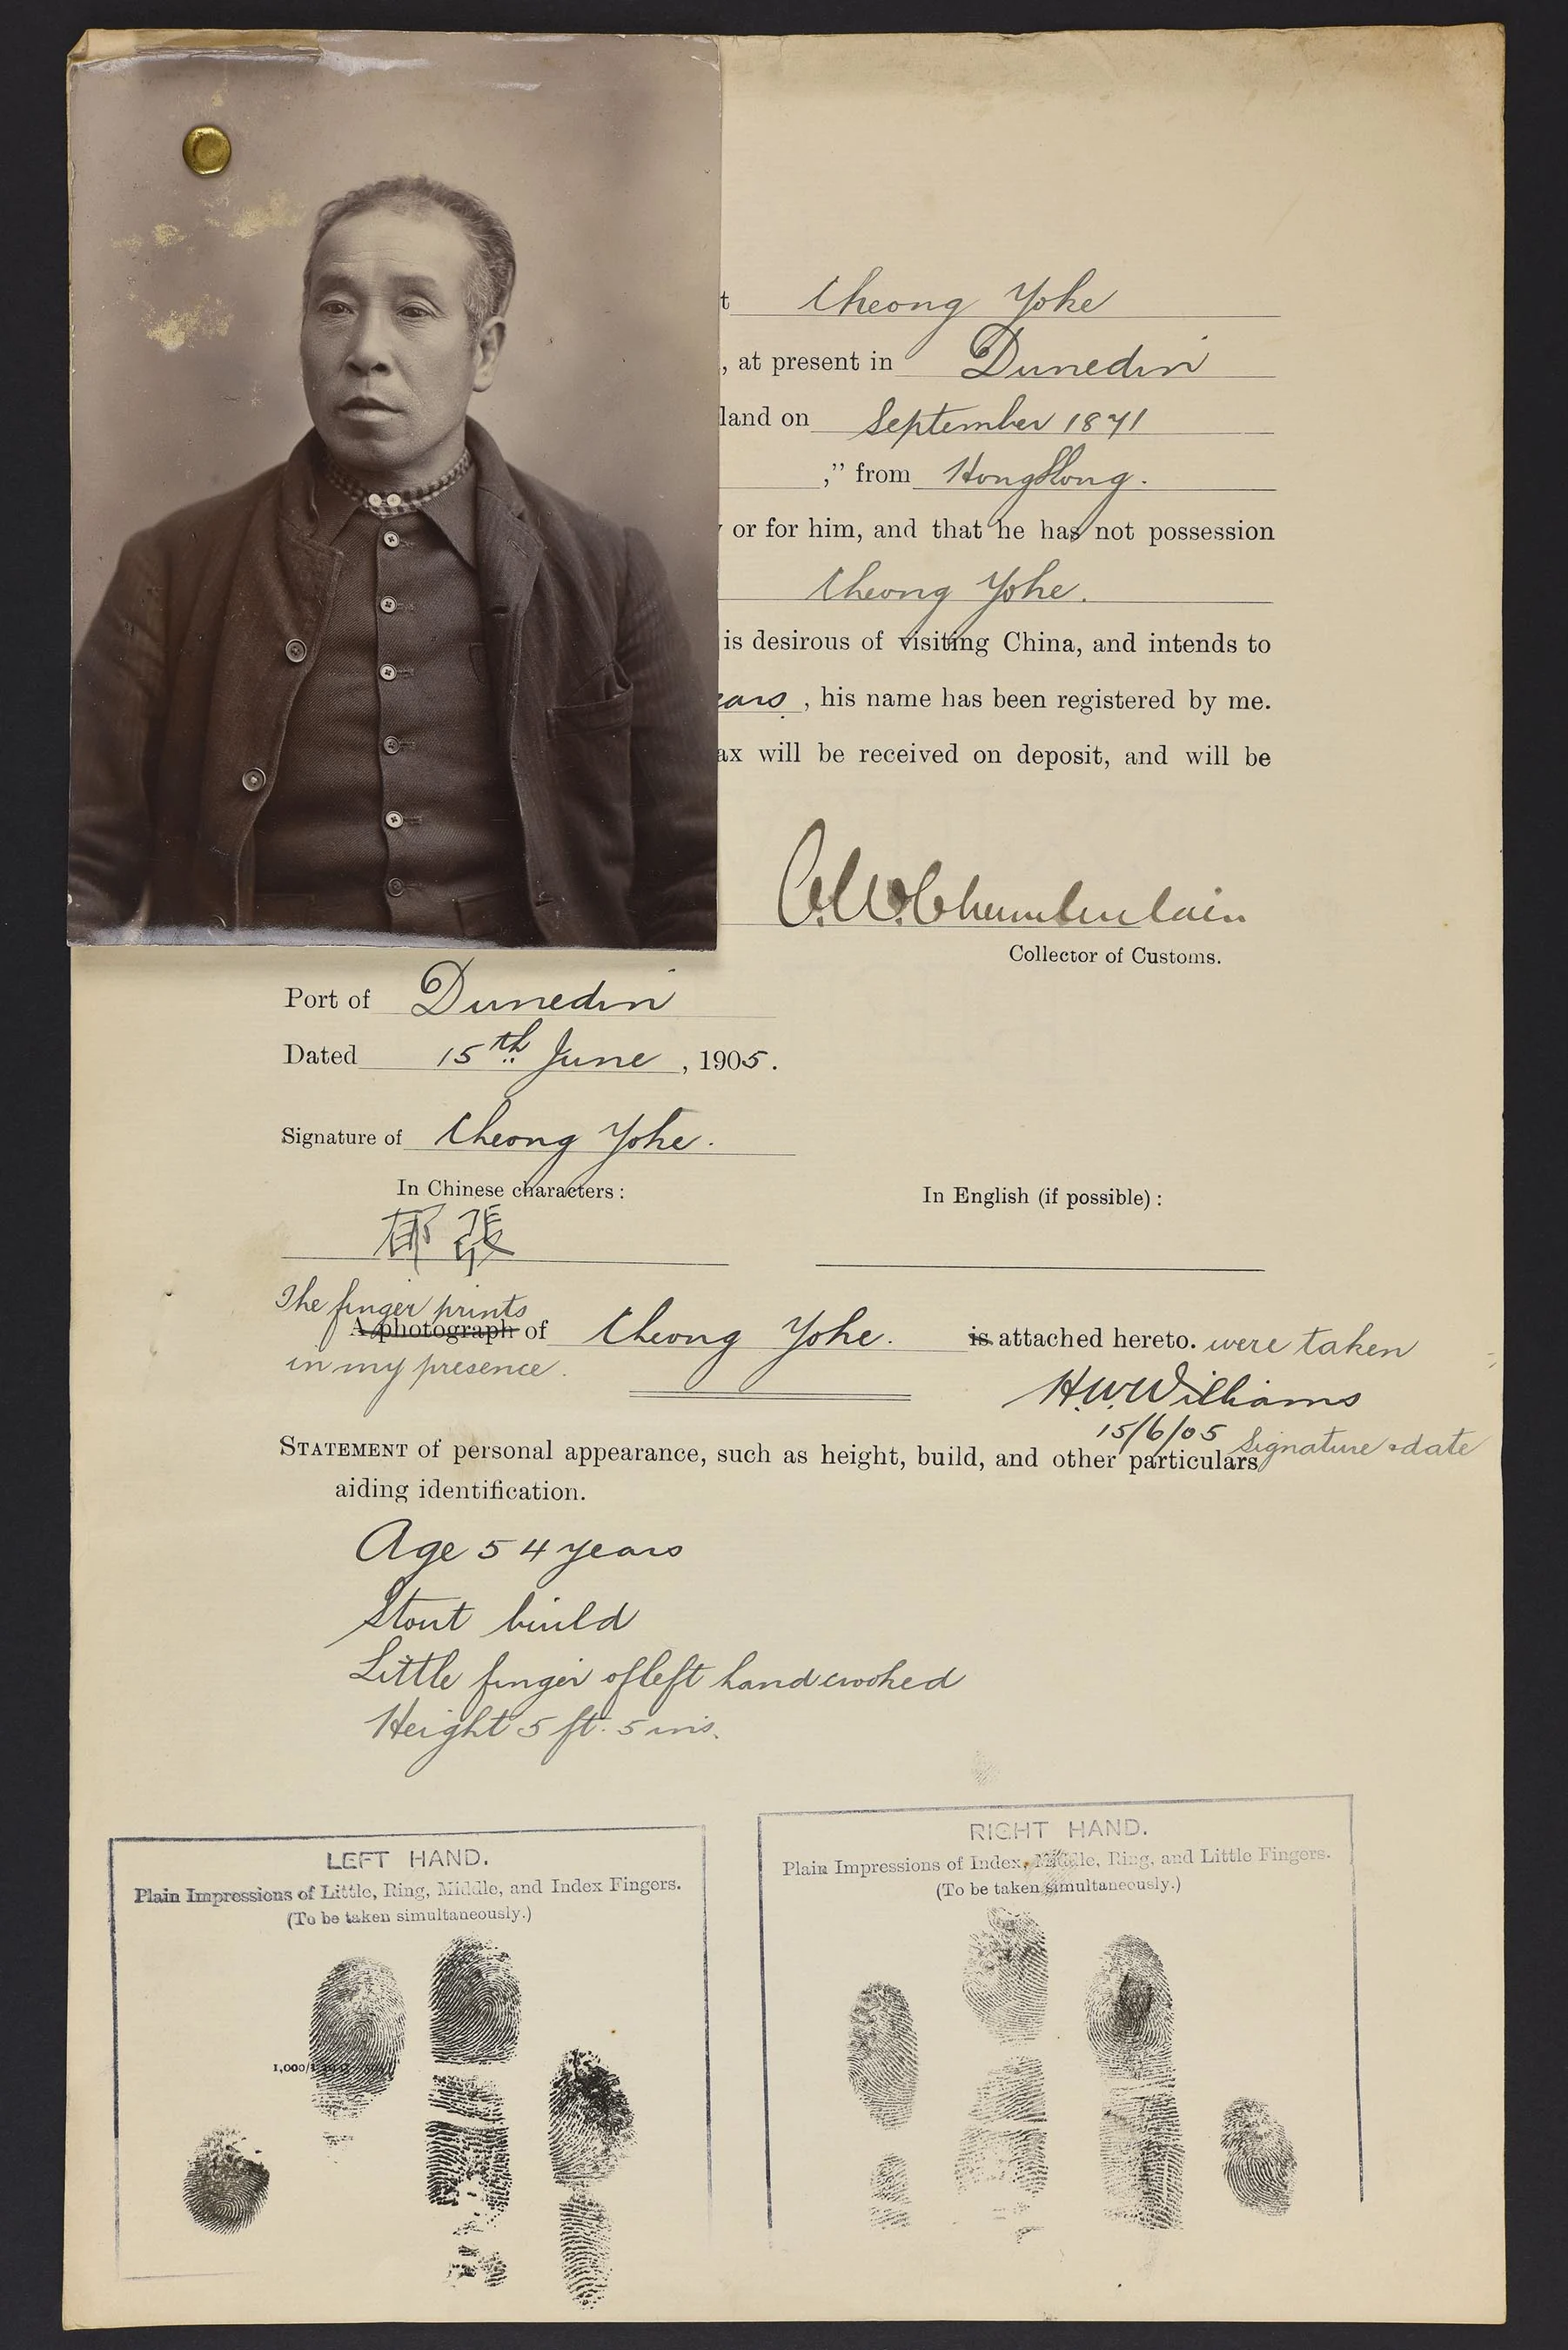 t Cheong Yohe
, at present in Dunedin
land on September 1871
," from Hong Kong.
or for him, and that he has not possession
Cheong Yohe.
is desirous of visiting China, and intends to
ears, his name has been registered by me.
ax will be received on deposit, and will be
C.W. Chamberlain
Collector of Customs.
Port of Dunedin
Dated 15th June, 1905.
Signature of Cheong Yohe.
In Chinese characters: In English (if possible):
郁張
The finger prints
A photograph of Cheong Yohe. is attached hereto. were taken
in my presence.
H.W. Williams
15/6/05 Signature & date
STATEMENT of personal appearance, such as height, build, and other particulars
aiding identification.
Age 54 years
Stout build
Little finger of left hand crooked
Height 5 ft. 5 ins.
LEFT HAND.
Plain Impressions of Little, Ring, Middle, and Index Fingers.
(To be taken simultaneously.)
1,000/
RIGHT HAND.
Plain Impressions of Index, Middle, Ring, and Little Fingers.
(To be taken simultaneously.)